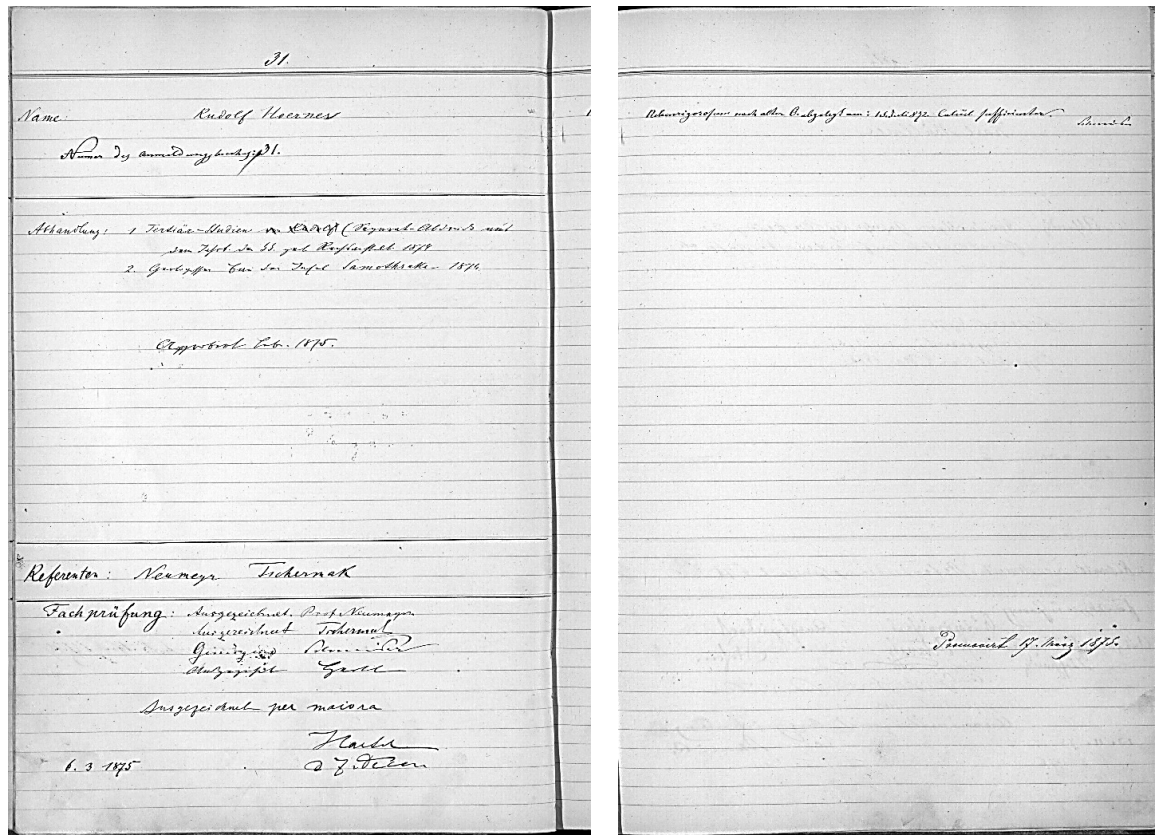 31.
Name: Rudolf Hoernes
Numer des anmeldungsbuches 31.
Abhandlung: 1 Tertiär-Studien (Separat-Abdruck aus
dem Jahrb. der geol. Reichsanstalt 1874
2. Geologischer Bau der Insel Samothrake 1874
Approbirt Feb. 1875.
Referenten: Neumayr Tschermak
Fachprüfung: Ausgezeichnet. Prof Neumayr
Ausgezeichnet Tschermak
Genügend
Ausgezeichnet
Ausgezeichnet per maiora
6. 3 1875 d. Z. Decan
Nebenrigorosum nach alter abgelegt am: Juli 872 Calcül sufficienter.
Promovirt 17. März 1875.